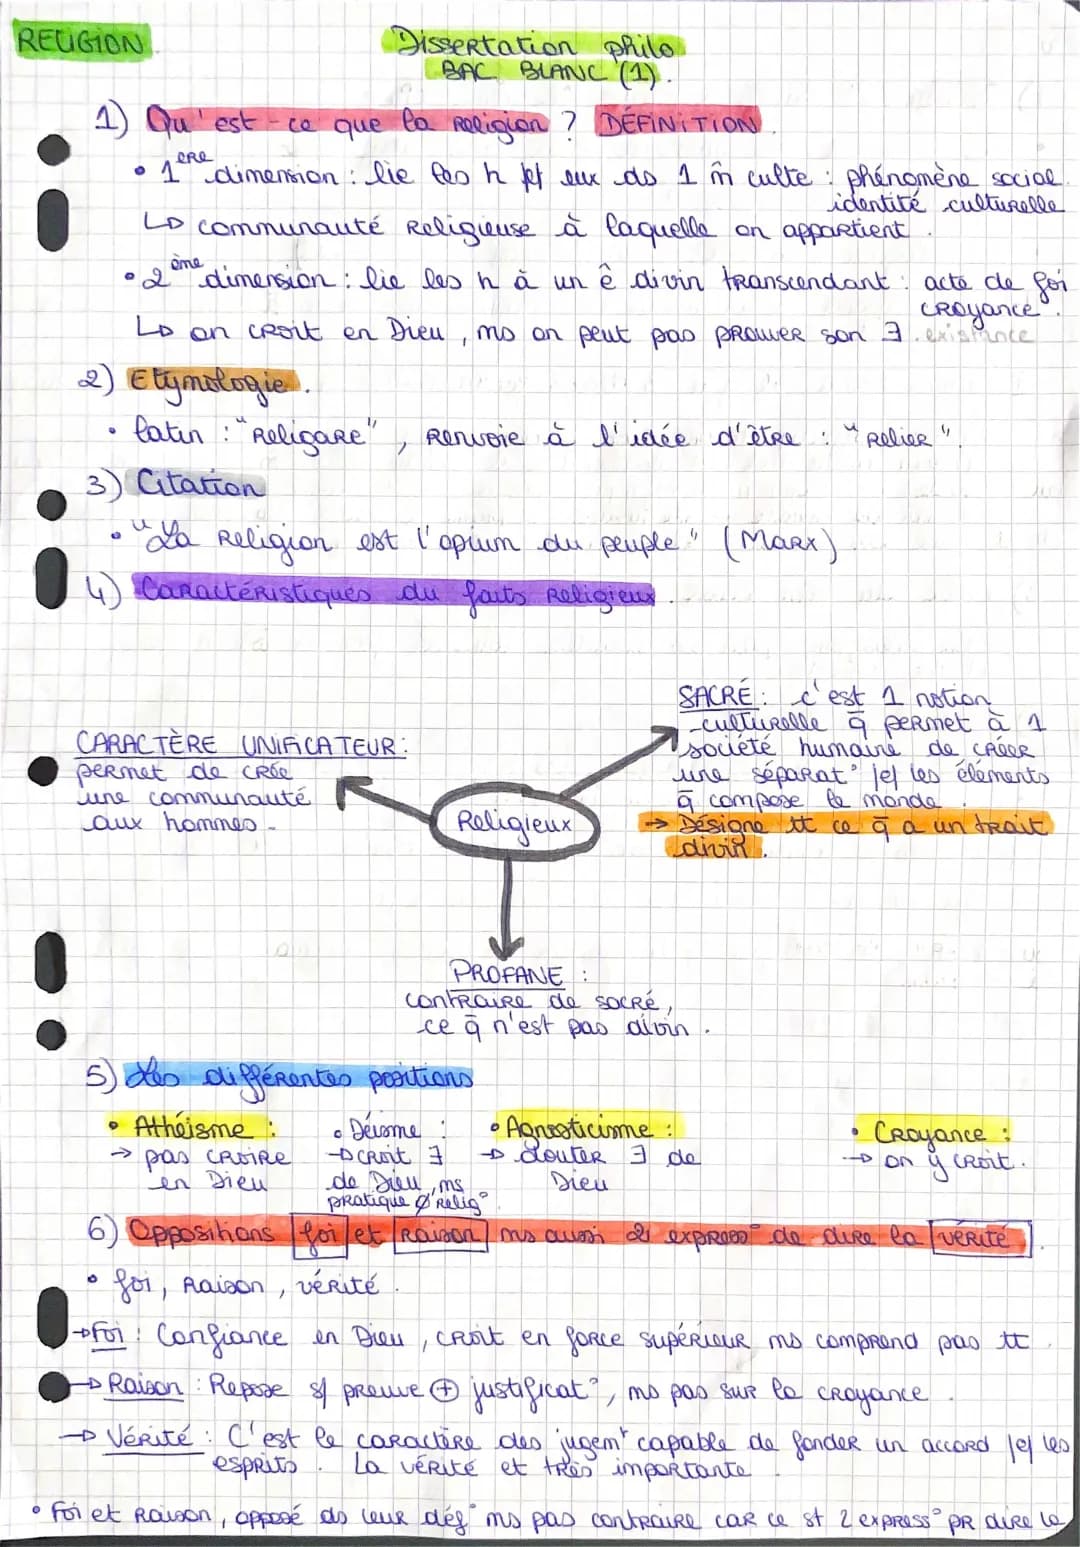 RELIGION
Dissertation philo
BAC BLANC (1).
1) Qu'est-ce que la religion ? DÉFINITION
• 1ERE dimension : lie les h |et| eux ds 1 m̂ culte : phénomène social.
identité culturelle
↳ communauté religieuse à laquelle on appartient.
• 2ème dimension : lie les h à un ê divin transcendant : acte de foi
croyance.
↳ on croit en Dieu, ms on peut pas prouver son ∃. existance
2) Etymologie.
• latin : "Religare", renvoie à l'idée d'être : "relier".
3) Citation
• "La religion est l'opium du peuple" (Marx)
4) Caractéristiques du faits religieux.
SACRÉ : c'est 1 notion
culturelle q̄ permet à 1
société humaine de créer
une séparat° |e| les éléments
q̄ compose le monde.
→ Désigne tt ce q̄ a un trait
divin.
CARACTÈRE UNIFICATEUR :
permet de crée
une communauté
aux hommes.
Religieux
PROFANE :
contraire de sacré,
ce q̄ n'est pas divin.
5) Les différentes positions
• Athéisme : • Déisme : • Agnosticisme : • Croyance :
→ pas croire → croit ∃ → douter ∃ de → on y croit.
en Dieu de Dieu, ms Dieu
pratique Ø relig°
6) Oppositions foi et Raison ms aussi 2 express° de dire la vérité.
• foi, raison, vérité.
→ Foi : Confiance en Dieu, croit en force supérieur ms comprend pas tt.
→ Raison : Repose s/ preuve ⊕ justificat°, ms pas sur la croyance.
→ Vérité : C'est le caractère des jugemt capable de fonder un accord |e| les
esprits. La vérité et très importante.
• Foi et Raison, opposé ds leur déf° ms pas contraire car ce st 2 express° pr dire la